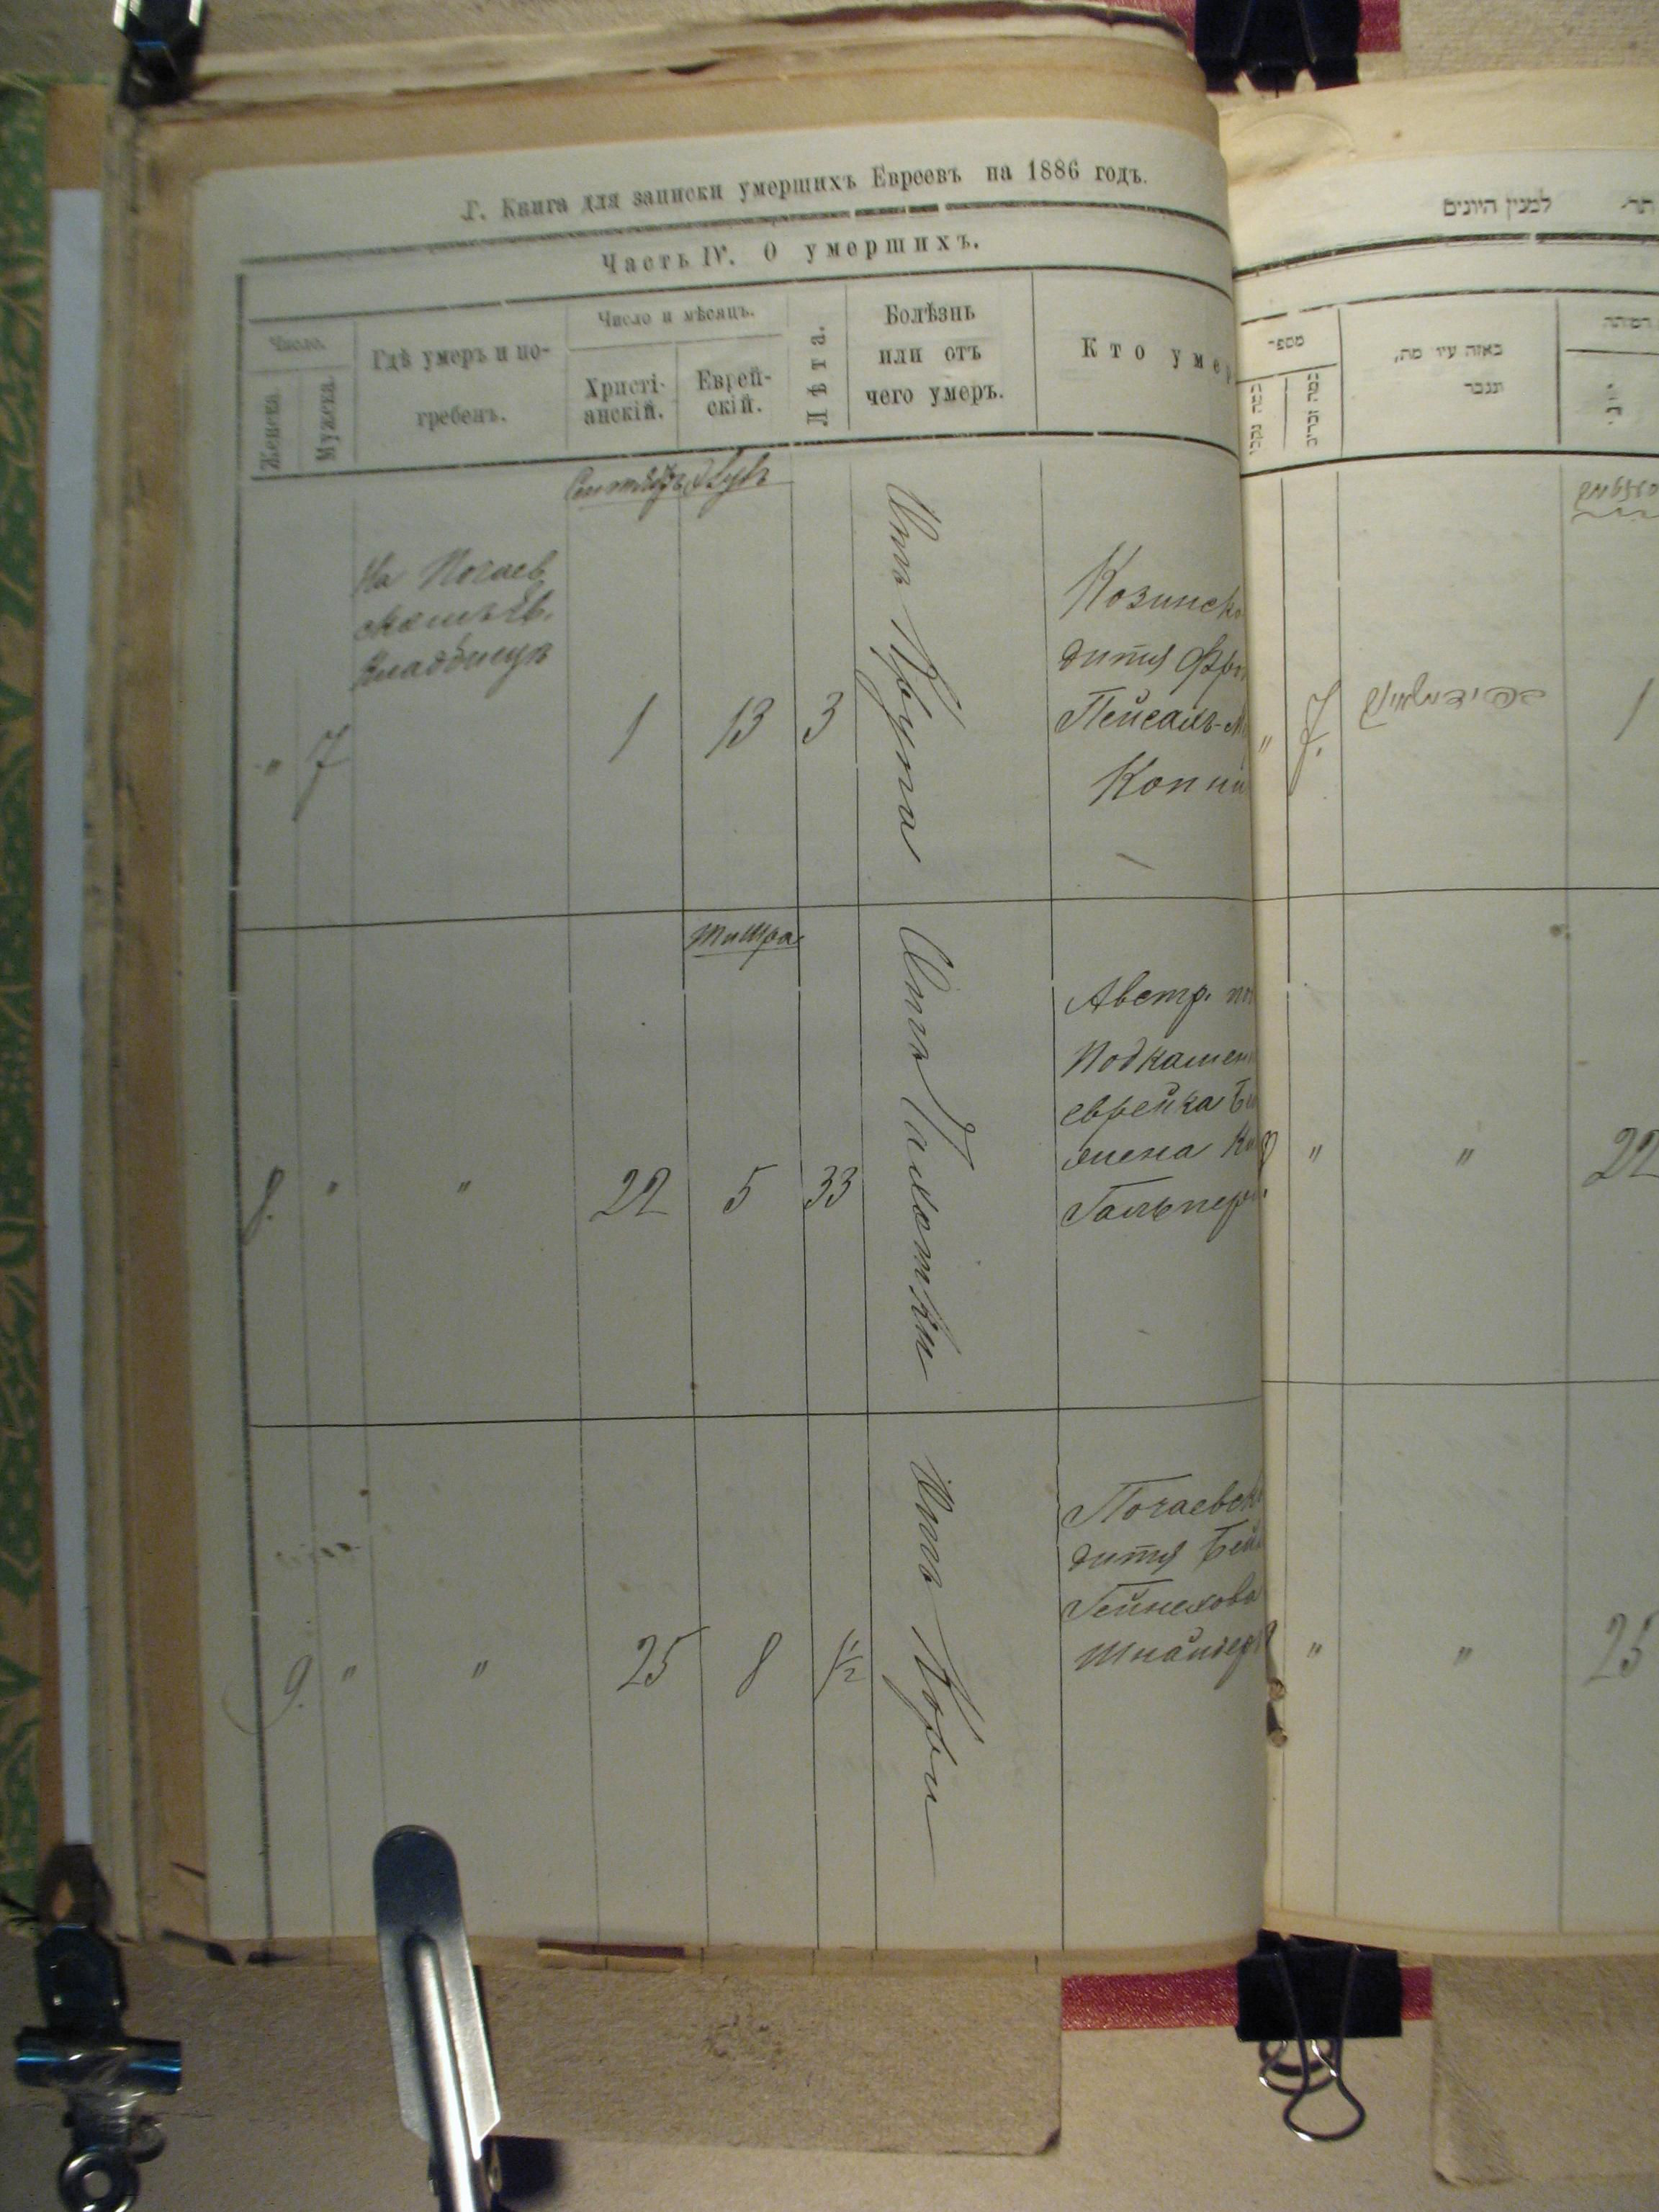 Г. Книга для записки умершихъ Евреевъ на 1886 годъ.
Часть IV. О умершихъ.
Число.
Женска.
Мужеска.
Гдѣ умеръ и по-
гребенъ.
Число и мѣсяцъ.
Христі-
анскій.
Еврей-
скій.
Лѣта.
Болѣзнь
или отъ
чего умеръ.
Кто умер
Сентябрь Элулъ
На Почаев
скомъ Ев.
Кладбищѣ
" 7
1
13
3
Отъ Крупа
Козинско
дитя
Пейсахъ-М
Копи
Тишра
8. " "
22
5
33
Отъ Чахотки
Австр. по
Подкамен
еврейка
жена
Гальпер
9. " "
25
8
1/2
Отъ Кори
Почаевск
дитя Бей
Гейнехова
Шнайдер
למנין היונים
תר
מספר
באזה עיר מת,
ונגבר
" 7.
1
" "
22
" "
25